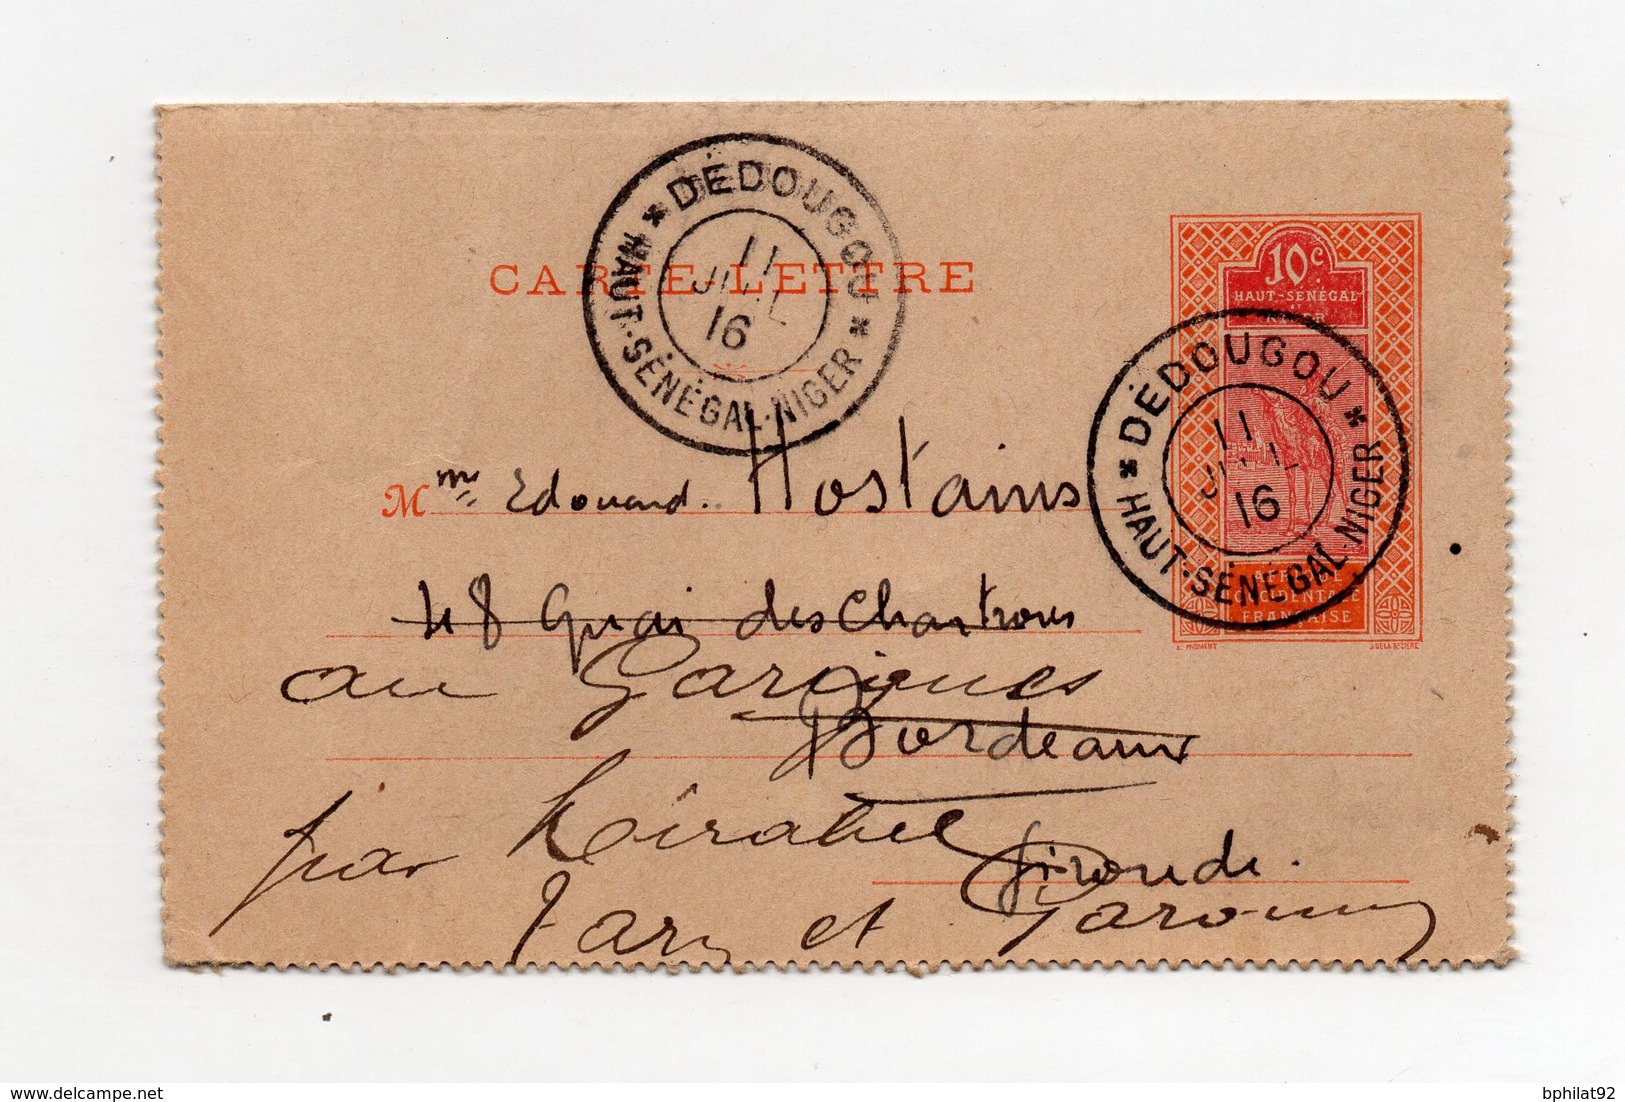 CARTE-LETTRE
* DÉDOUGOU *
11
JUIL
16
HAUT-SÉNÉGAL-NIGER
10c
HAUT-SÉNÉGAL
NIGER
* DÉDOUGOU *
11
JUIL
16
HAUT-SÉNÉGAL-NIGER
AFRIQUE
OCCIDENTALE
FRANÇAISE
E. FROMENT J. DE LA NÉZIÈRE
Mme Edouard Hostains
48 Quai des Chartrons
au Garigues
Bordeaux
par
Gironde.
Tarn et Garonne
delcampe.net
bphilat92